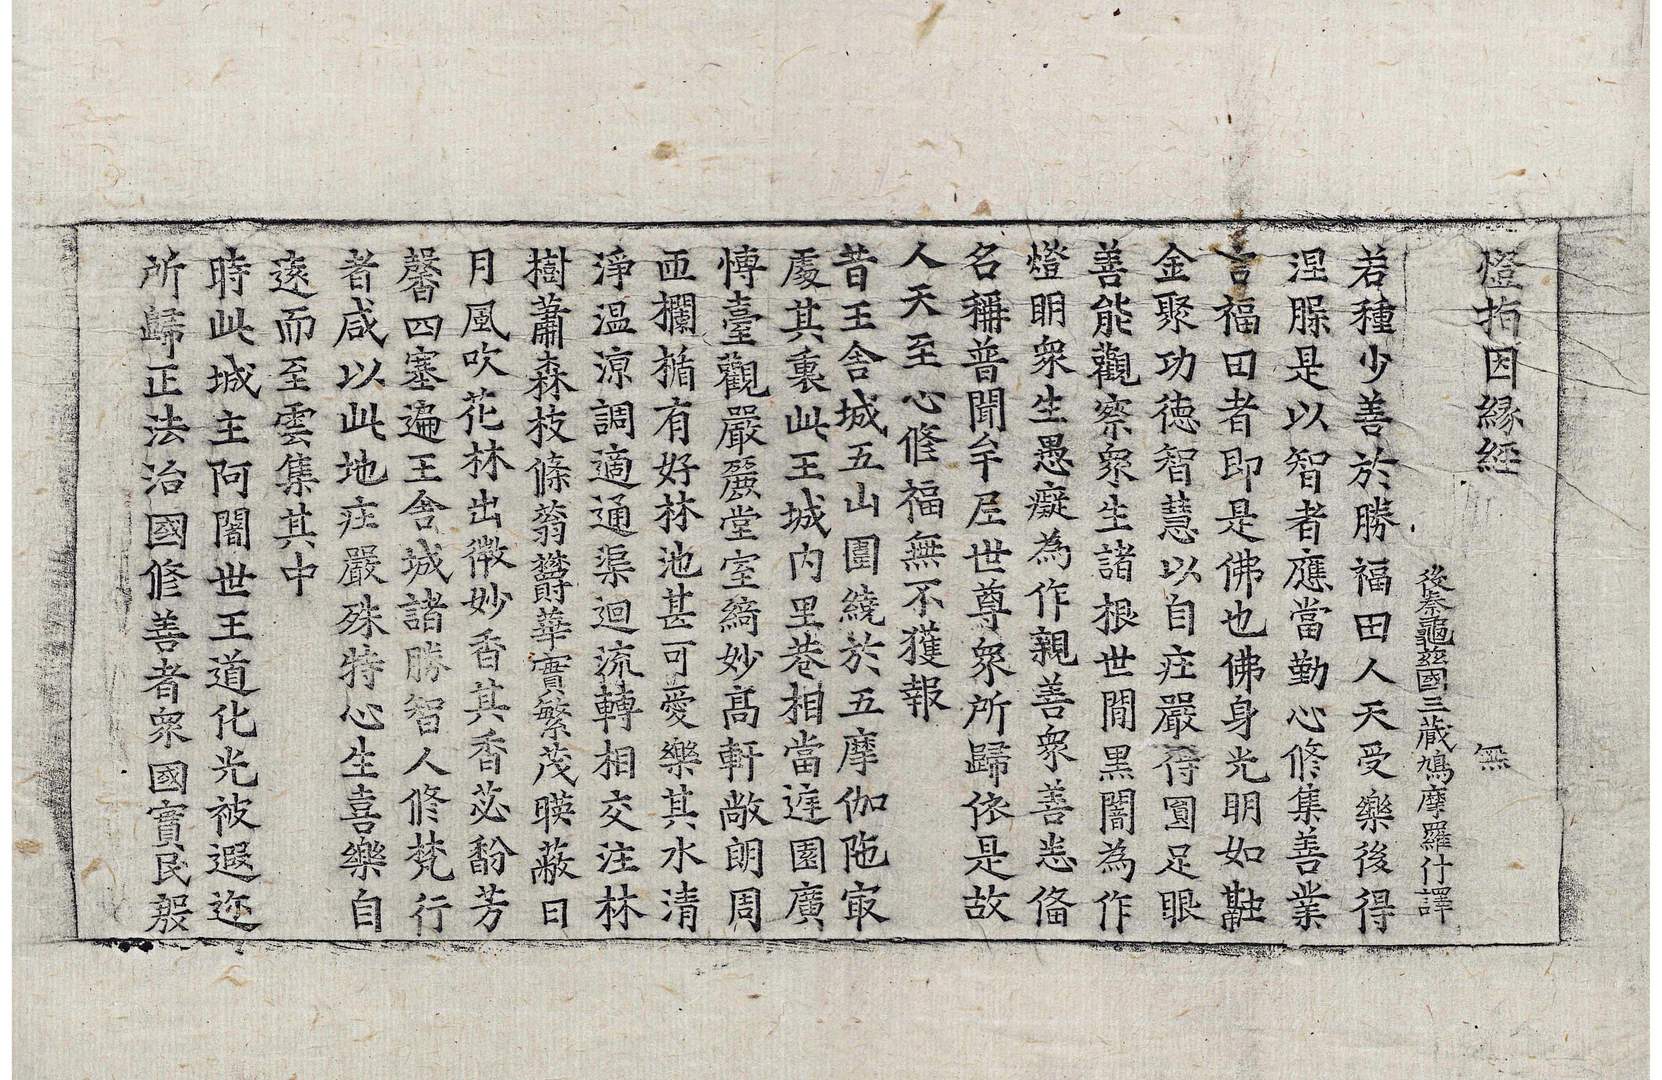 燈指因縁經 無
後秦龜茲國三藏鳩摩羅什譯
若種少善於勝福田人天受樂後得
涅腺是以智者應當勤心修集善業
言福田者即是佛也佛身光明如融
金聚功徳智慧以自庄嚴得圓足眼
善能觀察衆生諸根世間黒闇為作
燈明衆生愚癡為作親善衆善悉俻
名稱普聞牟尼世尊衆所歸依是故
人天至心修福無不獲報
昔王舎城五山圍繞於五摩伽陁㝡
處其裏此王城内里巷相當莛園廣
愽臺觀嚴麗堂室綺妙髙軒敞朗周
匝欄楯有好林池甚可愛樂其水清
淨温涼調適通渠迴流轉相交注林
樹蕭森枝條蓊欝華實繁茂暎蔽日
月風吹花林出微妙香其香苾馚芳
馨四塞遍王舎城諸勝智人修梵行
者咸以此地庄嚴殊特心生喜樂自
遠而至雲集其中
時此城主阿闍世王道化光被遐迩
所歸正法治國修善者衆國實民殷